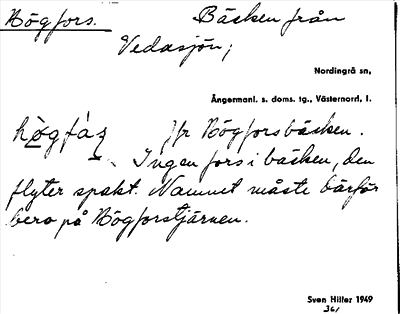 Högfors. Bäcken från
Vedasjön;
Nordingrå sn,
Ångermanl. s. doms. tg., Västernorrl. l.
Jfr Högforsbäcken.
Ingen fors i bäcken, den
flyter spakt. Namnet måste därför
bero på Högforstjärnen.
Sven Hiller 1949
361